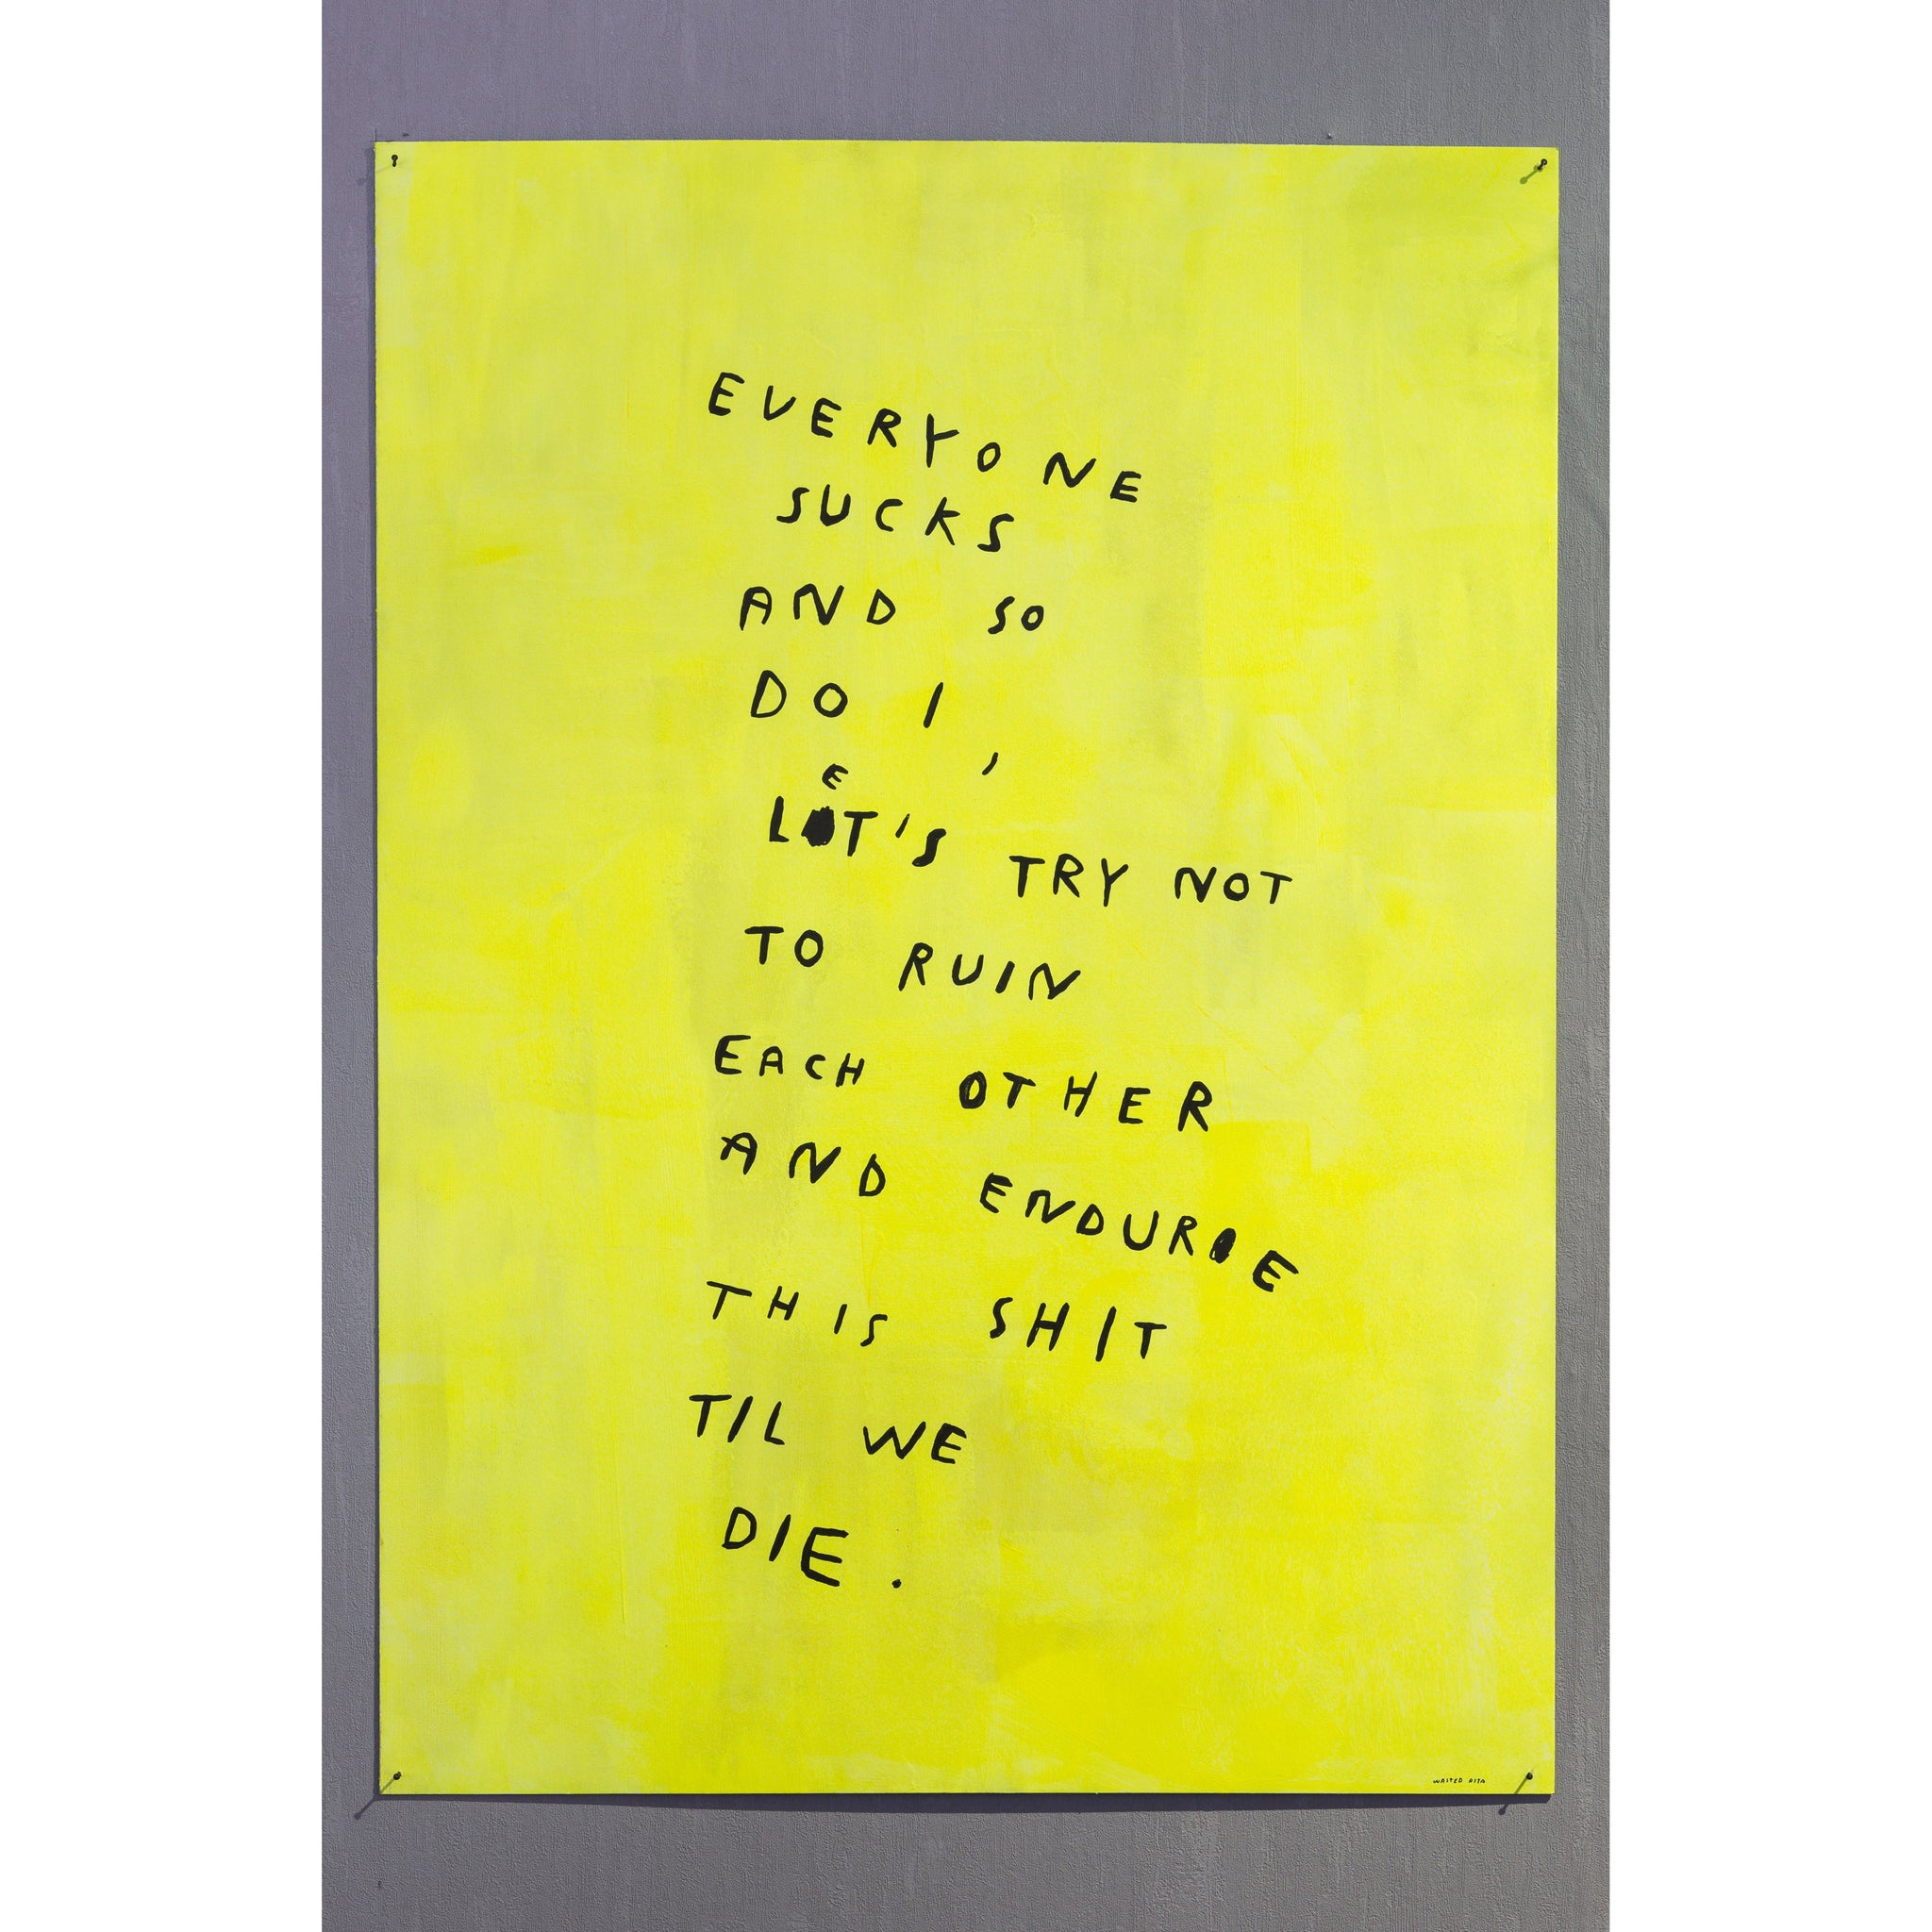 EVERYONE
SUCKS
AND SO
DO I,
LET'S TRY NOT
TO RUIN
EACH OTHER
AND ENDURE
THIS SHIT
TIL WE
DIE.
WASTED RITA